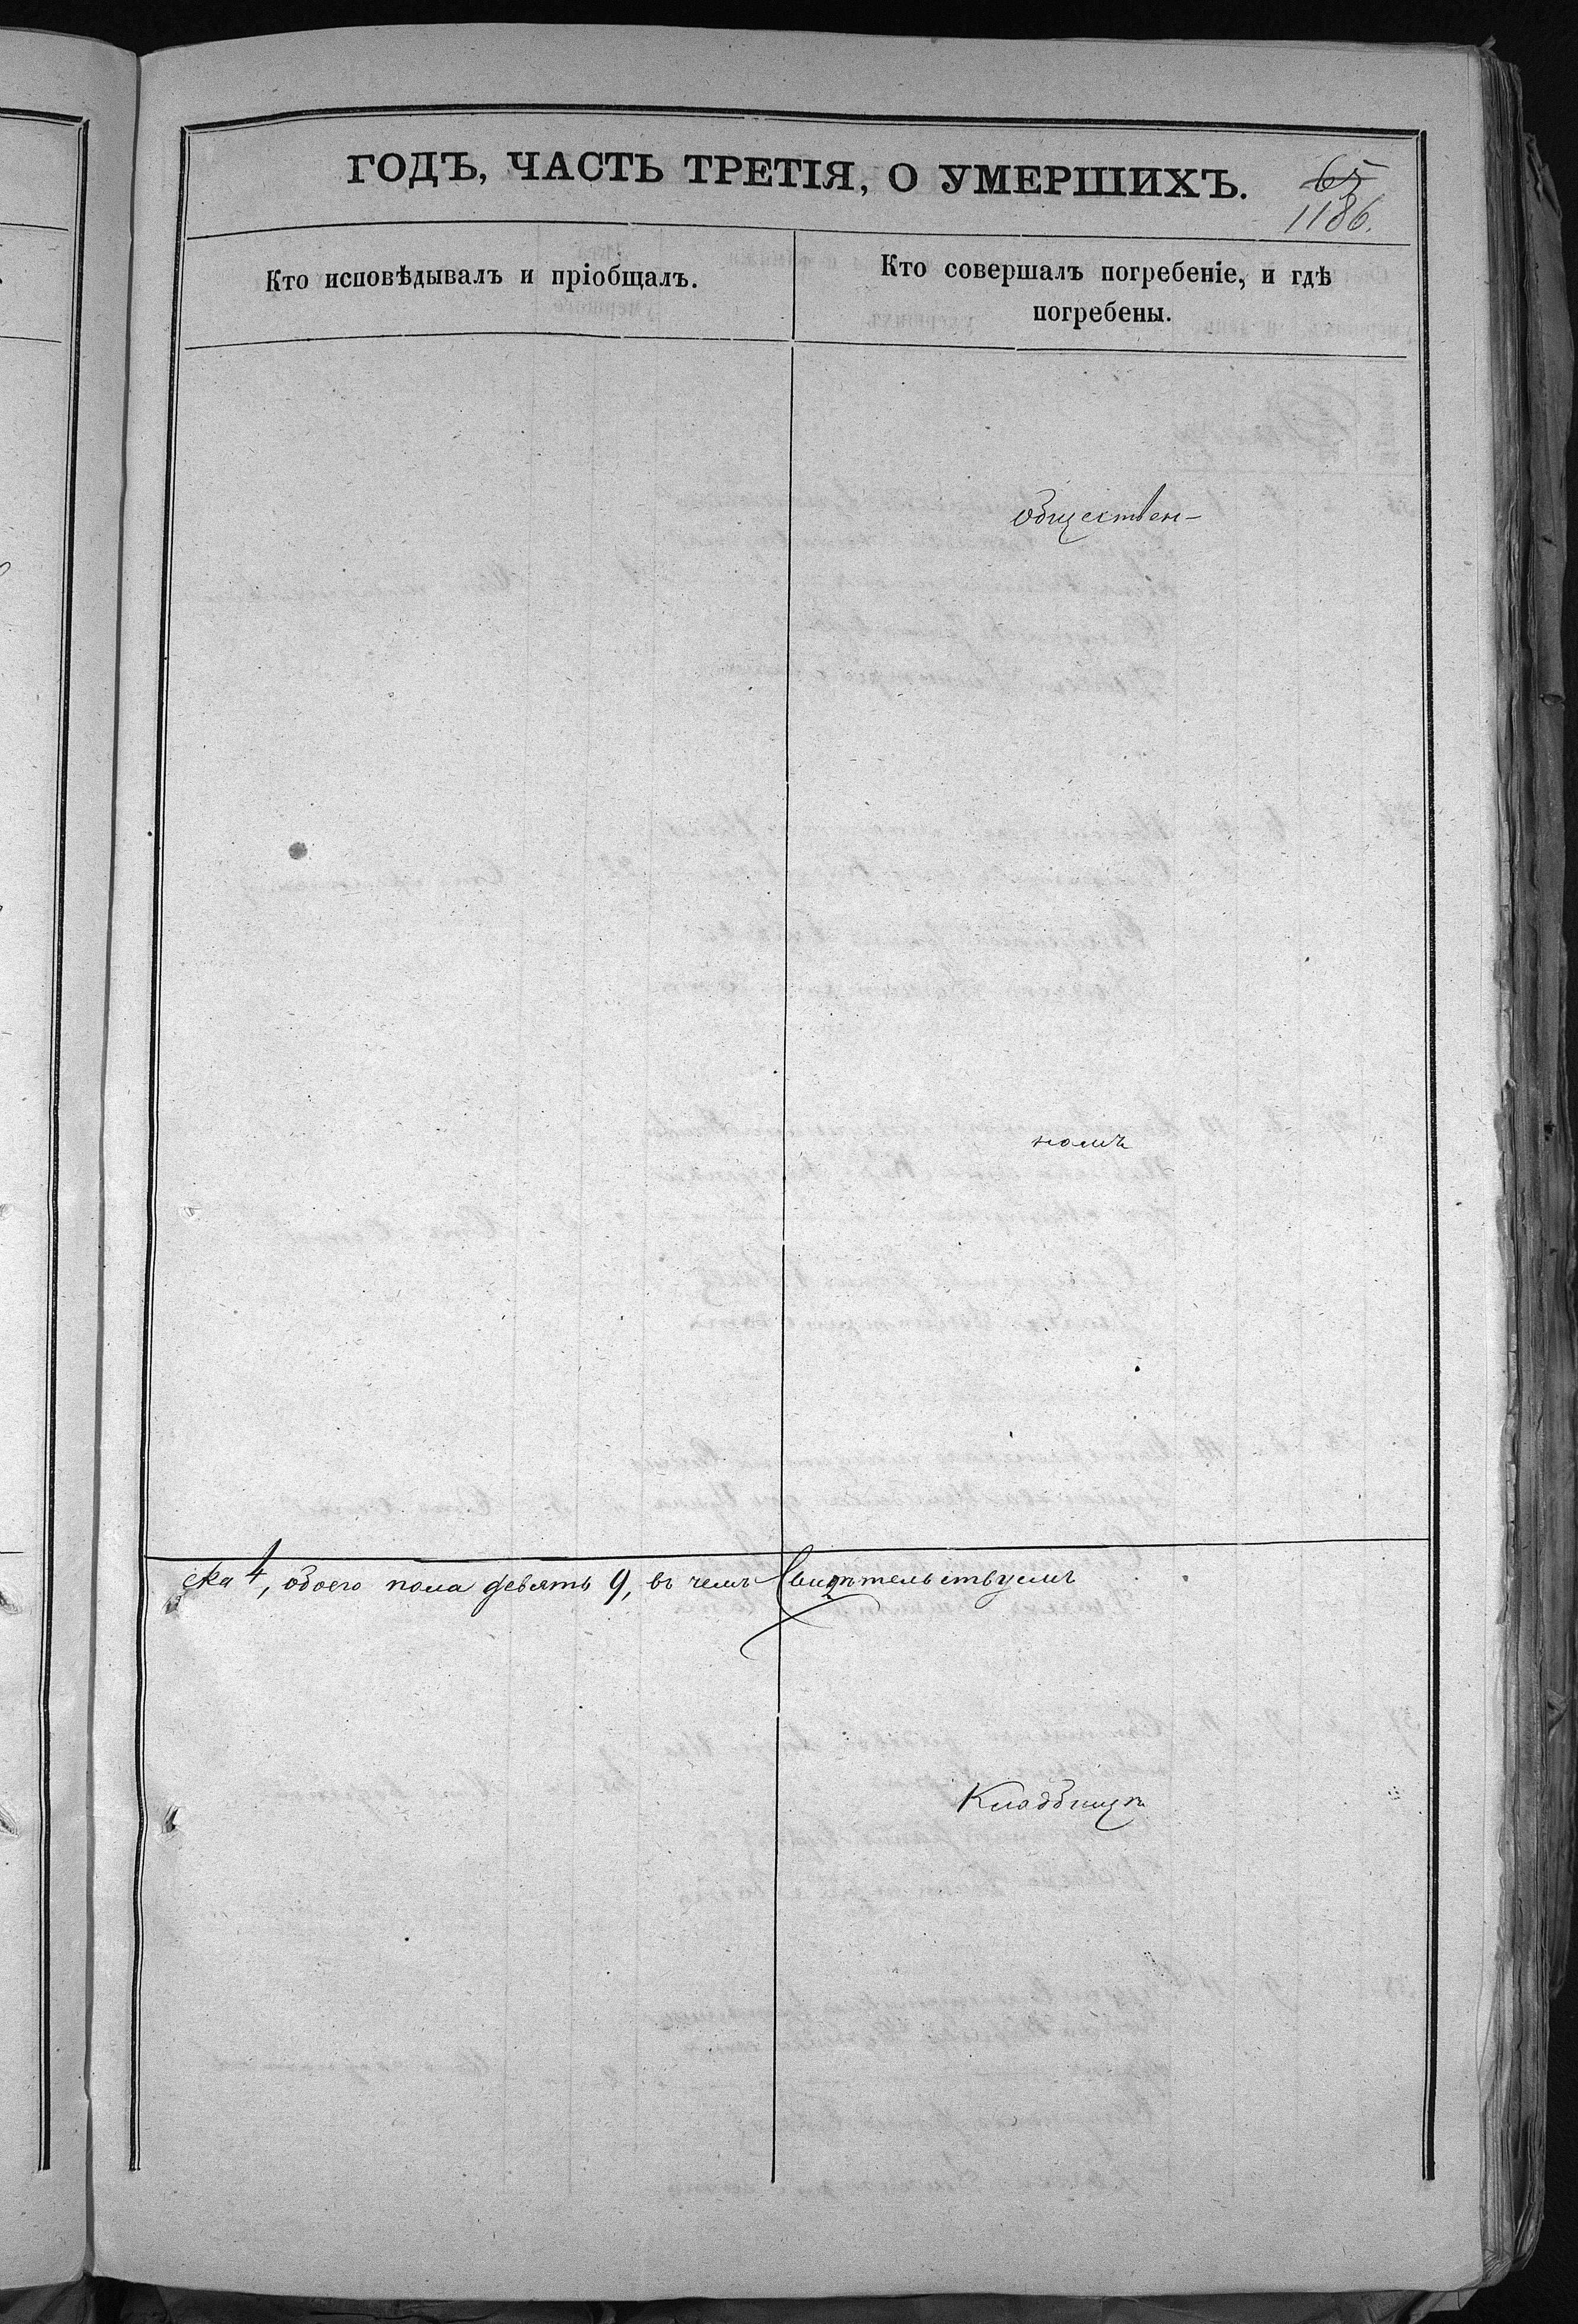 ГОДЪ, ЧАСТЬ ТРЕТІЯ, О УМЕРШИХЪ.
65
1186.
Кто исповѣдывалъ и пріобщалъ.
Кто совершалъ погребеніе, и гдѣ
погребены.
обществен-
номъ
ска 4, обоего пола девять 9, въ чемъ Свидѣтельствуемъ
Кладбищѣ